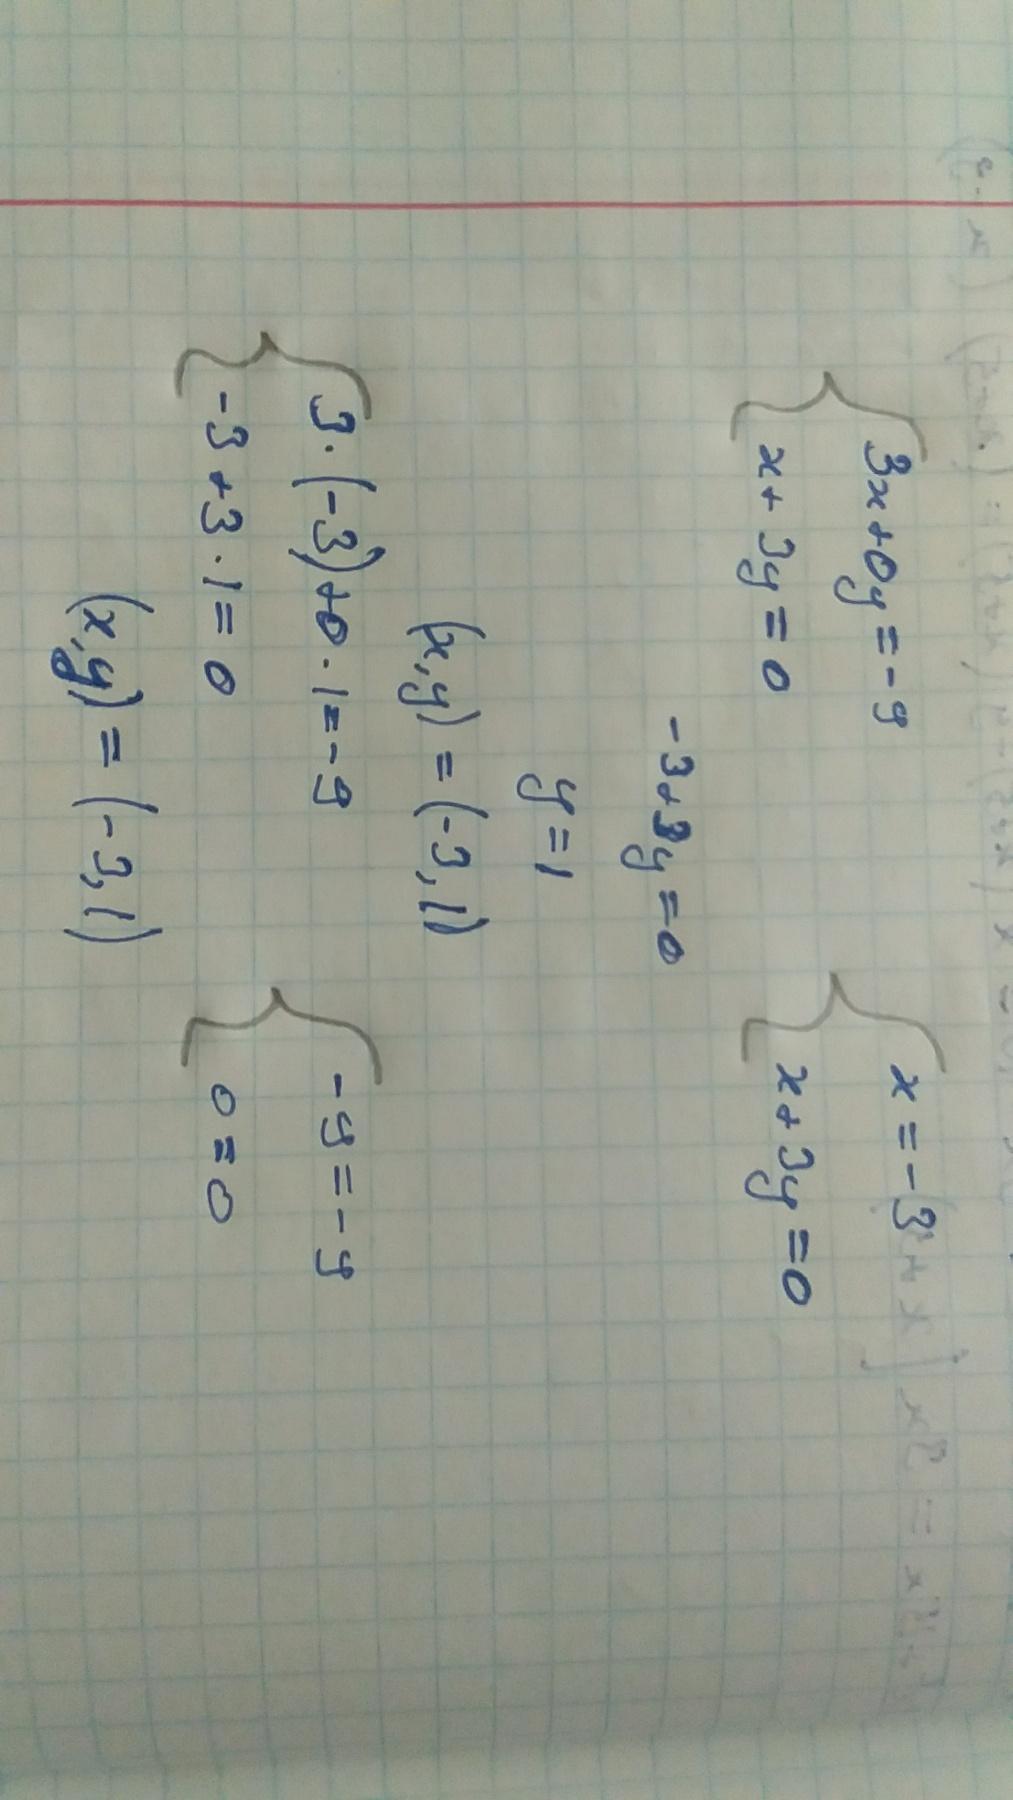 3x+0y=-9    x=-3
x+3y=0    x+3y=0
-3+3y=0
y=1
(x,y)=(-3,1)
3·(-3)+0·1=-9    -9=-9
-3+3·1=0    0=0
(x,y)=(-3,1)